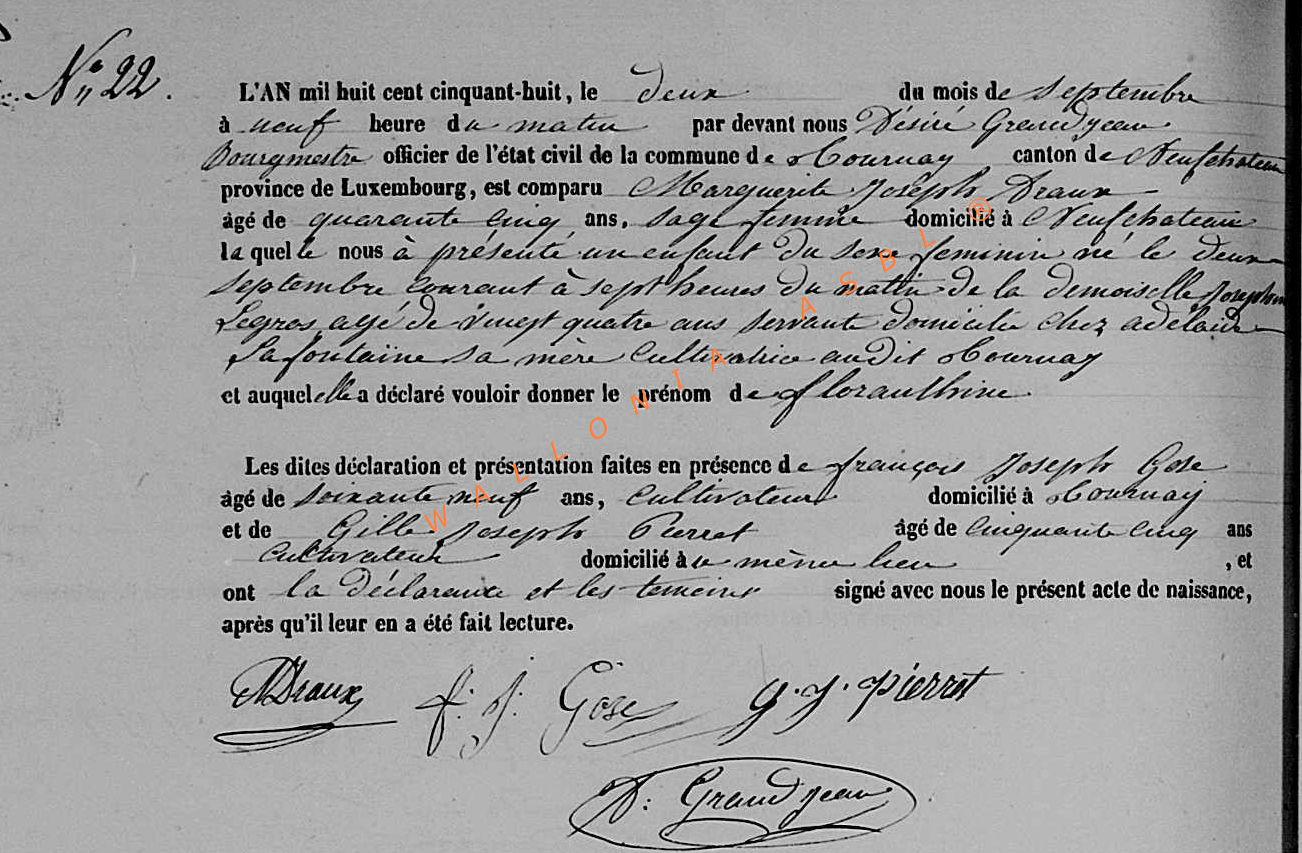 N° 22.
L'AN mil huit cent cinquant-huit, le deux du mois de Septembre
à neuf heure du matin par devant nous Désiré Grandjean
Bourgmestre officier de l'état civil de la commune de Tournay canton de Neufchateau
province de Luxembourg, est comparu Marguerite Joseph Draux
âgé de quarante cinq ans, sage femme domicilié à Neufchateau
laquelle nous à présenté un enfant du sexe feminin né le deux
Septembre courant à sept heures du matin de la demoiselle Josephine
Legros agé de vingt quatre ans servante domicilié chez adelaide
Lafontaine sa mère Cultivatrice audit Tournay
et auquel elle a déclaré vouloir donner le prénom de floranthine
Les dites déclaration et présentation faites en présence de françois Joseph Gose
âgé de soixante neuf ans, Cultivateur domicilié à Tournay
et de Gille Joseph Pierret âgé de Cinquante cinq ans
Cultivateur domicilié au même lieu , et
ont la déclarante et les temoins signé avec nous le présent acte de naissance,
après qu'il leur en a été fait lecture.
MDraux f. j. Gose g. j. pierret
D. Grandjean
WALLONIA ASBL ®